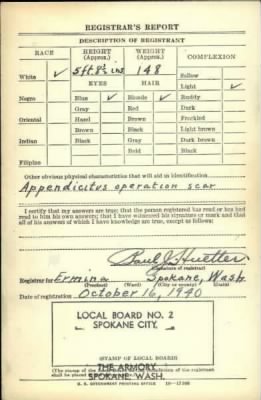 REGISTRAR'S REPORT
DESCRIPTION OF REGISTRANT
RACE HEIGHT (Approx.) WEIGHT (Approx.) COMPLEXION
White ✓ 5 ft. 9½ ins 148 Sallow
EYES HAIR Light ✓
Negro Blue ✓ Blonde ✓ Ruddy
Gray Red Dark
Oriental Hazel Brown Freckled
Brown Black Light brown
Indian Black Gray Dark brown
Bald Black
Filipino
Other obvious physical characteristics that will aid in identification
Appendicitus operation scar
I certify that my answers are true; that the person registered has read or has had
read to him his own answers; that I have witnessed his signature or mark and that
all of his answers of which I have knowledge are true, except
Paul J. Huetter
(Signature of registrar)
Registrar for Ermina Spokane, Wash
(Precinct) (Ward) (City or county) (State)
Date of registration October 16, 1940
LOCAL BOARD NO. 2
SPOKANE CITY.
THE ARMORY
SPOKANE, WASH.
(STAMP OF LOCAL BOARD)
U. S. GOVERNMENT PRINTING OFFICE